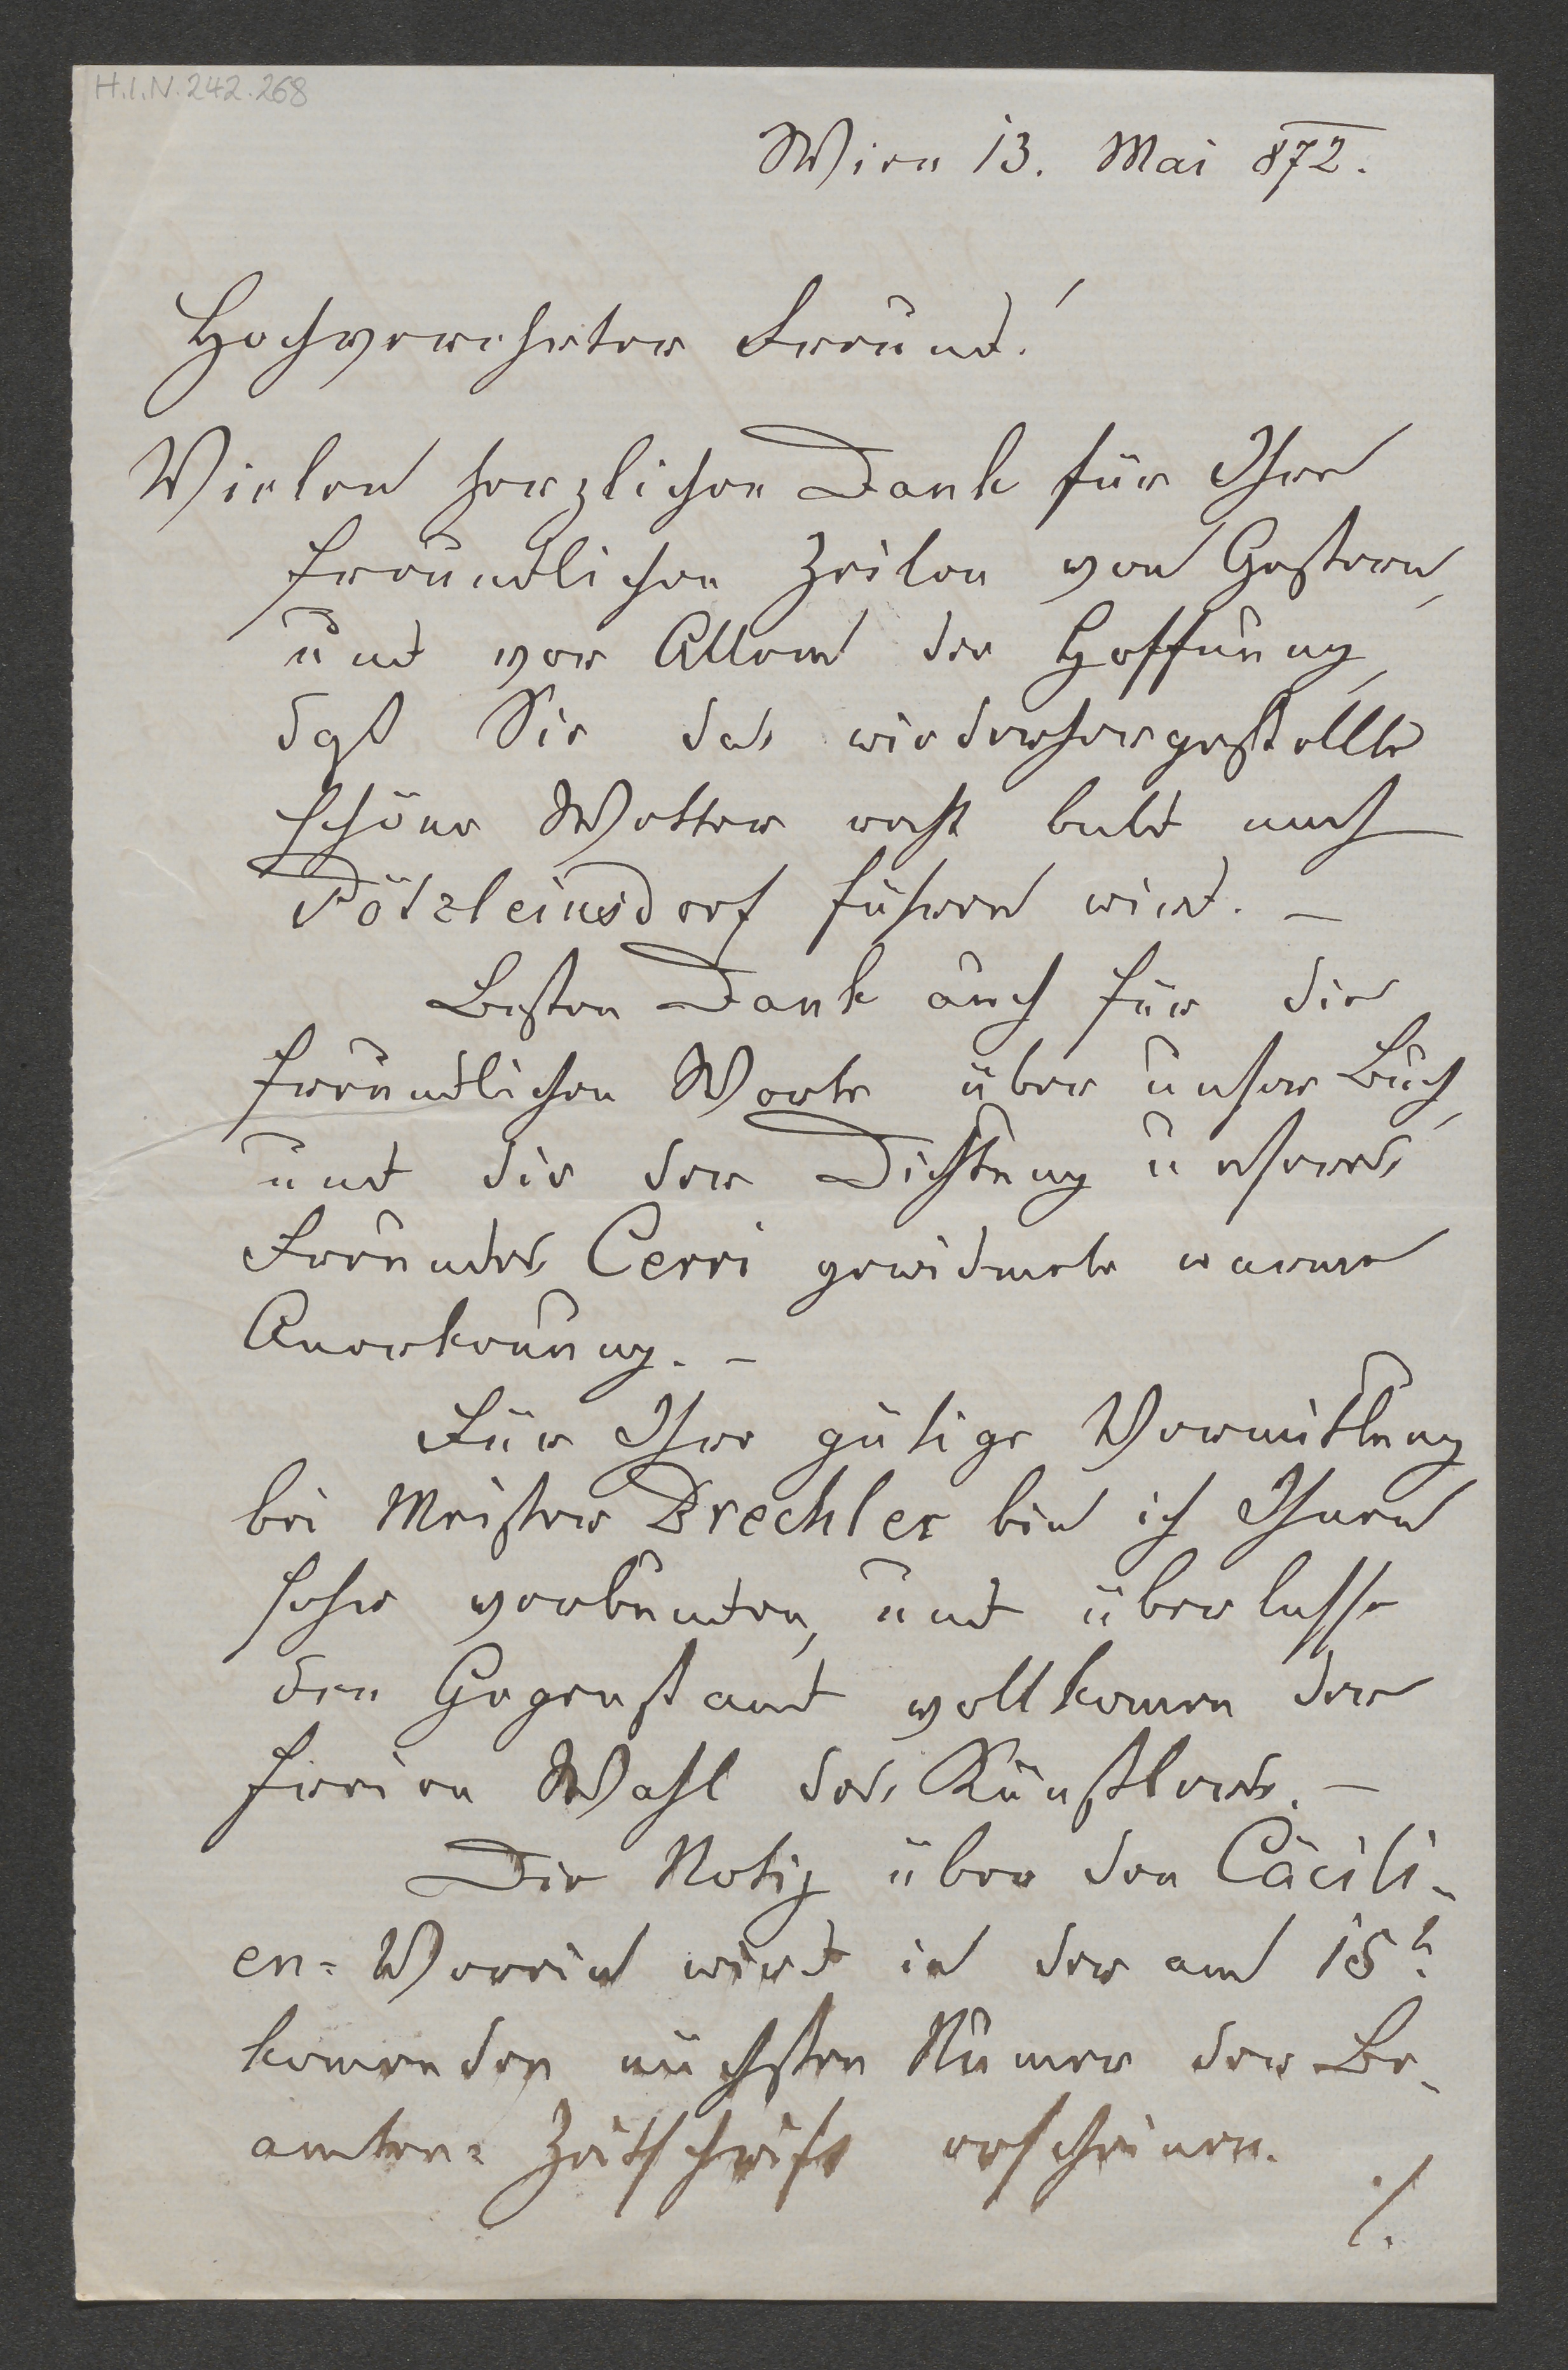 H.I.N. 242.268
Wien 13. Mai 872.
Hochverehrter Freund!
Vielen herzlichen Dank für Ihre
freundlichen Zeilen von Gestern,
und vor Allem die Hoffnung,
daß Sie das wiederhergestellte
schöne Wetter recht bald nach
Pötzleinsdorf führen wird. –
Besten Dank auch für die
freundlichen Worte über unser Buch,
und die der Dichtung unseres
Freundes Cerri gewidmete warme
Anerkennung. –
Für Ihre gütige Vermittlung
bei Meister Drechler bin ich Ihnen
sehr verbunden, und überlasse
den Gegenstand vollkomen der
freien Wahl des Künstlers. –
Die Notiz über den Cäcili-
en-Verein wird in der am 15t
komenden nächsten Numer der Be-
amten-Zeitschrift erscheinen.
./.